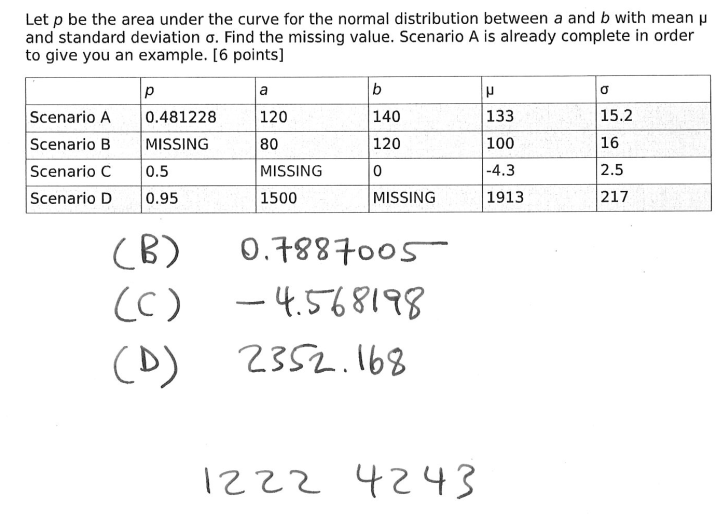 Let p be the area under the curve for the normal distribution between a and b with mean μ
and standard deviation σ. Find the missing value. Scenario A is already complete in order
to give you an example. [6 points]
p a b μ σ
Scenario A 0.481228 120 140 133 15.2
Scenario B MISSING 80 120 100 16
Scenario C 0.5 MISSING 0 -4.3 2.5
Scenario D 0.95 1500 MISSING 1913 217
(B) 0.7887005
(C) -4.568198
(D) 2352.168
1222 4243